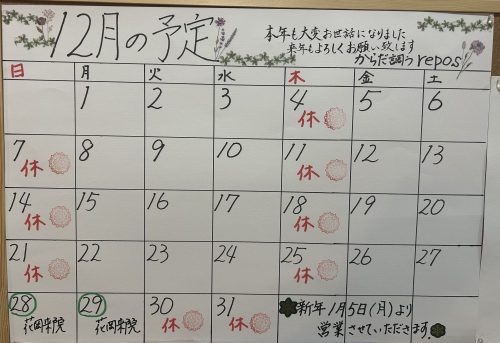 12月の予定
本年も大変お世話になりました
来年もよろしくお願い致します
からだ調う repos
日 月 火 水 木 金 土
1 2 3 4 5 6
休
7 8 9 10 11 12 13
休 休
14 15 16 17 18 19 20
休 休
21 22 23 24 25 26 27
休 休
28 29 30 31 新年1月5日(月)より
花岡来院 花岡来院 休 休 営業させていただきます。